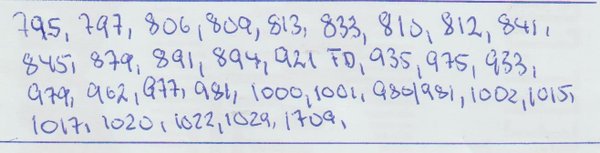 795, 797, 806, 809, 813, 833, 810, 812, 841,
845, 879, 891, 894, 921 FD, 935, 975, 933,
979, 962, 977, 981, 1000, 1001, 980/981, 1002, 1015,
1017, 1020, 1022, 1029, 1709,